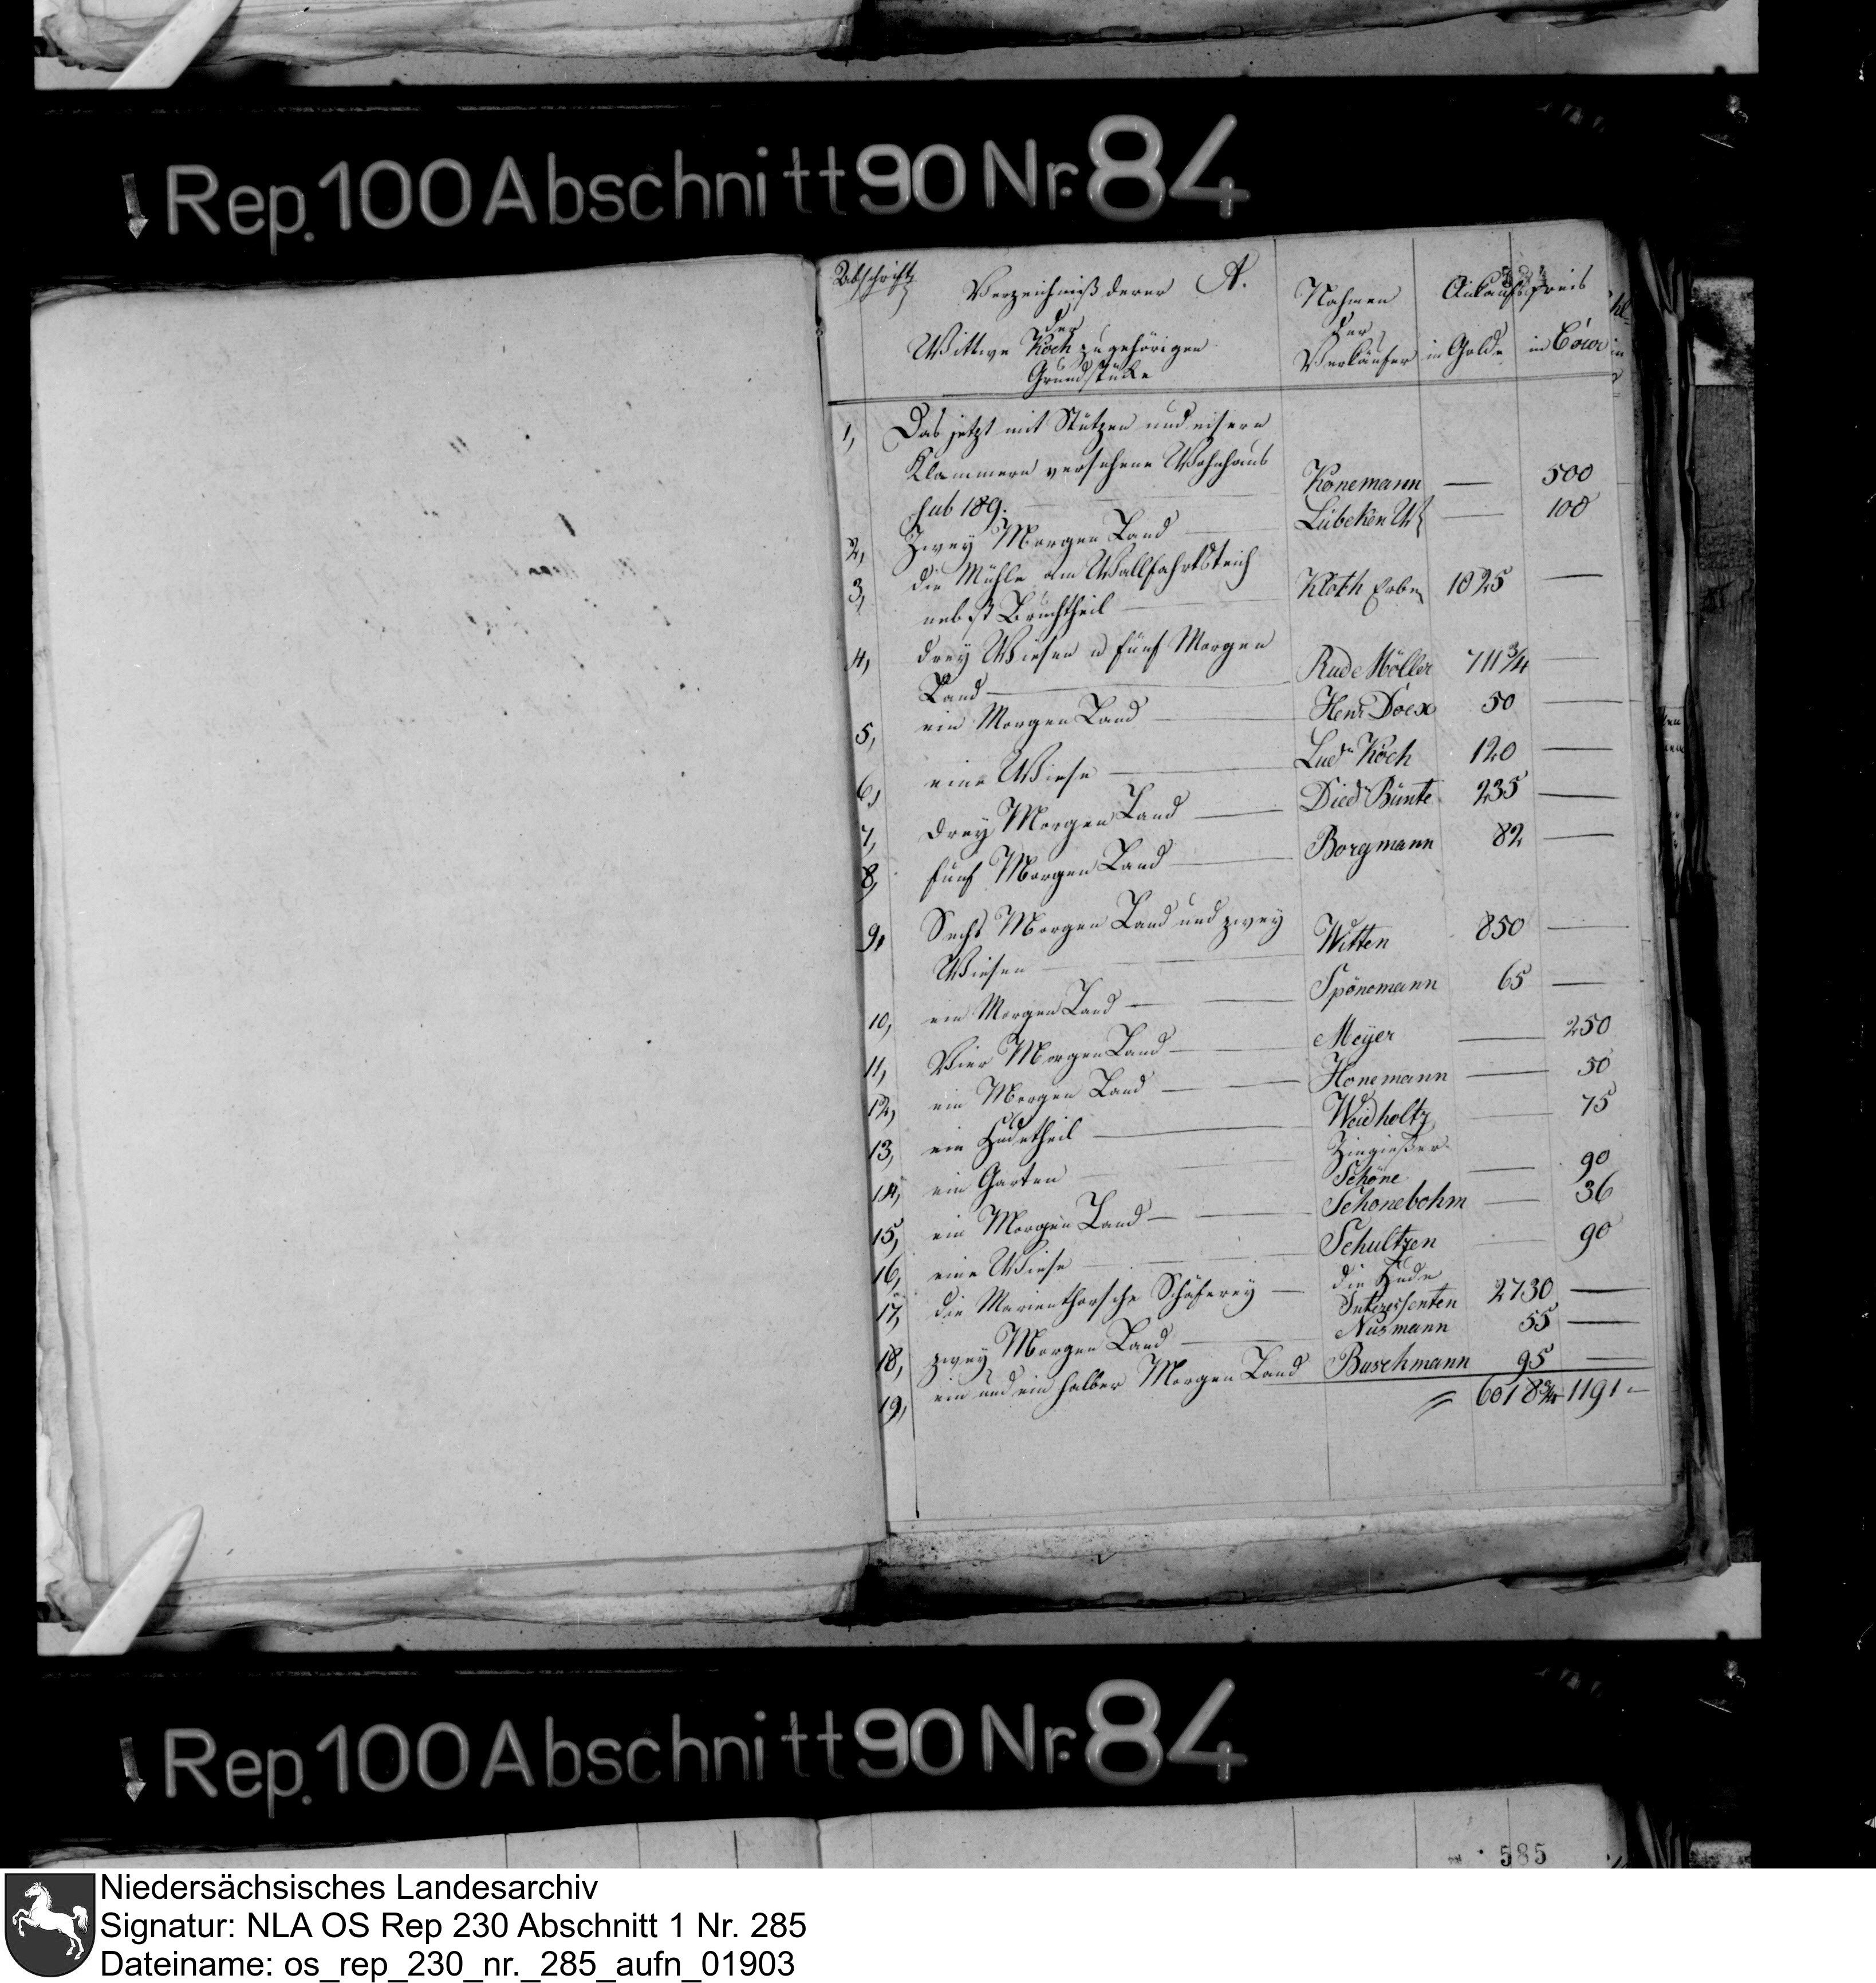 Rep. 100 Abschnitt 90 Nr. 84
Abschrift
Verzeichniß derer A.
der
Wittwe Koch zugehörigen
Grundstücke
Nahmen
der
Verkäufer
Ankaufspreis
in Golde
in Cour
1, Das jetzt mit Stützen und eisern
Klammern versehene Wohnhaus
sub 189. Könemann — 500
2, Zwey Morgen Land Lübcken — 100
3, die Mühle am Wallfahrtsteich
nebst Bruchtheil Kloth Erben 1025 —
4, drey Wiesen u fünf Morgen
Land Rud Möller 711 3/4 —
5, ein Morgen Land Henr Doex 50 —
6, eine Wiese Lud Koch 120 —
7, drey Morgen Land Died Bünte 235 —
8, fünf Morgen Land Borgmann 82 —
9, Sechs Morgen Land und zwey
Wiesen Witten 850 —
10, ein Morgen Land Spönemann 65 —
11, Vier Morgen Land Meyer — 250
12, ein Morgen Land Honemann — 50
13, ein Hudetheil Weidholtz — 75
14, ein Garten Zingießer
Schöne — 90
15, ein Morgen Land Schonebohm — 36
16, eine Wiese Schultzen — 90
17, die Marienthorsche Schäferey die Hude
Interessenten 2730 —
18, zwey Morgen Land Nusmann 55 —
19, ein und ein halber Morgen Land Buschmann 95 —
6018 3/4 1191 —
Rep. 100 Abschnitt 90 Nr. 84
585
Niedersächsisches Landesarchiv
Signatur: NLA OS Rep 230 Abschnitt 1 Nr. 285
Dateiname: os_rep_230_nr._285_aufn_01903